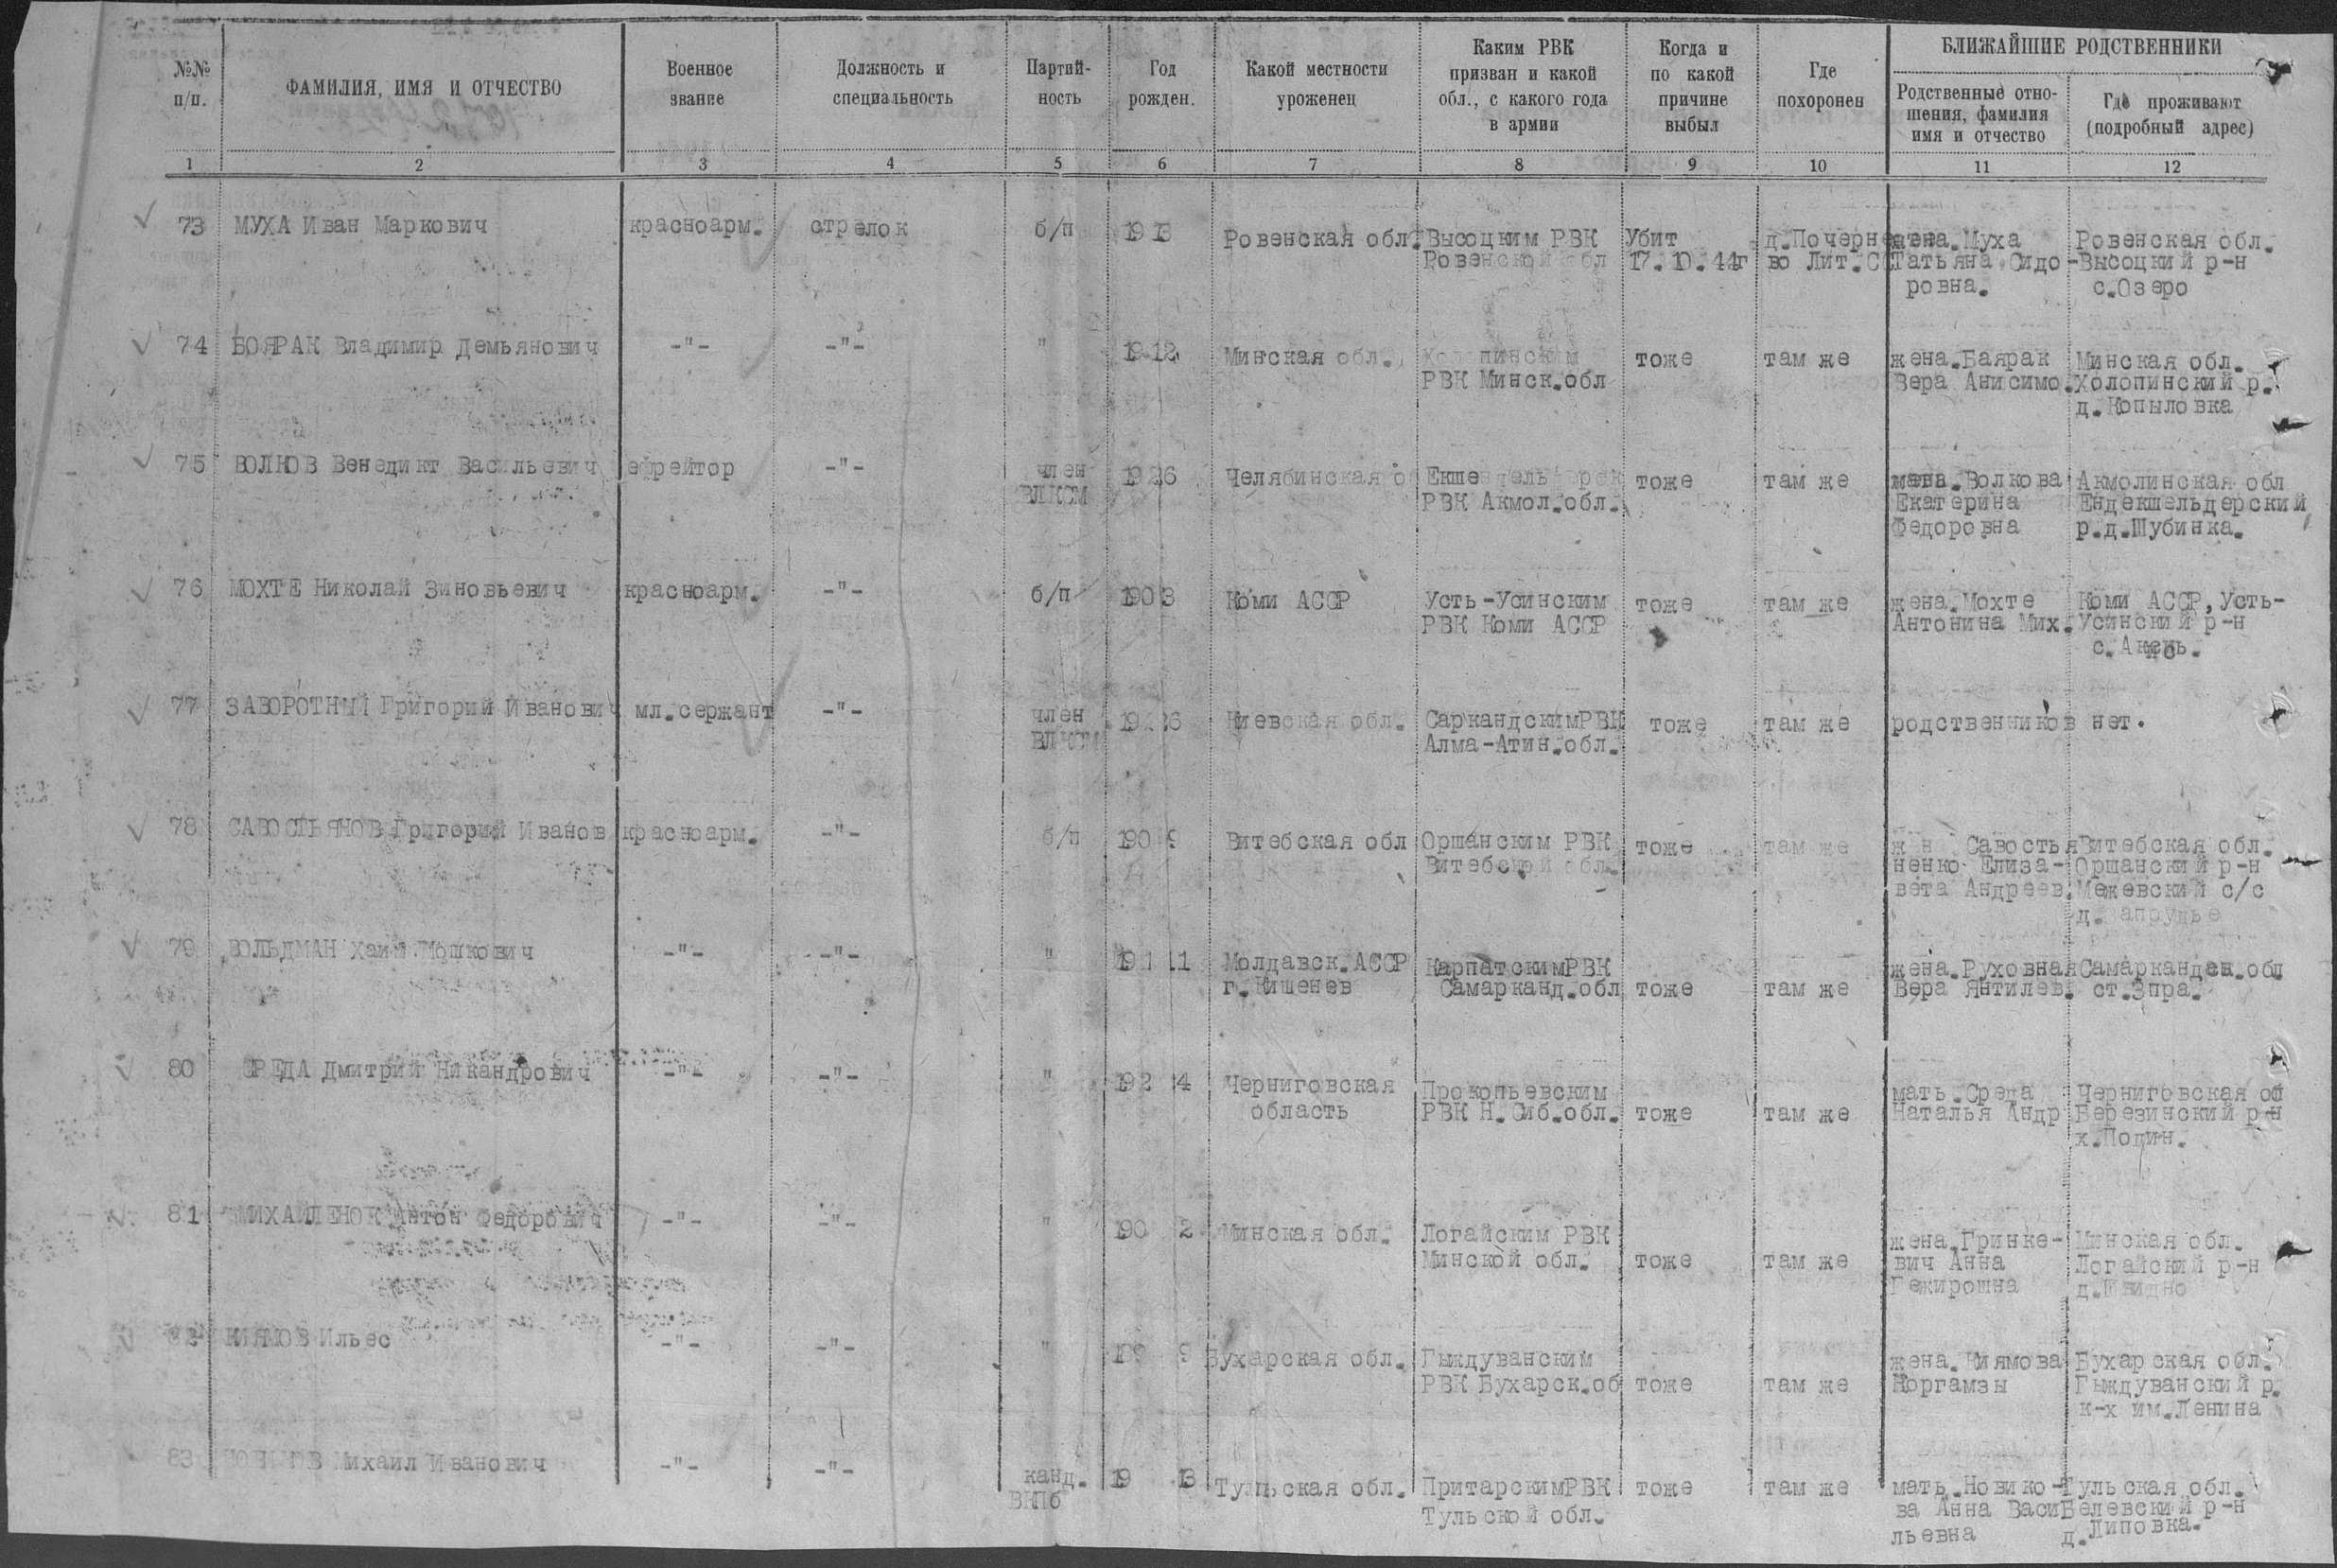 №№ п/п. ФАМИЛИЯ, ИМЯ И ОТЧЕСТВО Военное звание Должность и специальность Партий-ность Год рожден. Какой местности уроженец Каким РВК призван и какой обл., с какого года в армии Когда и по какой причине выбыл Где похоронен БЛИЖАЙШИЕ РОДСТВЕННИКИ
Родственные отно-шения, фамилия имя и отчество Где проживают (подробный адрес)
1 2 3 4 5 6 7 8 9 10 11 12
73 МУХА Иван Маркович красноарм. стрелок б/п 1913 Ровенская обл. Высоцким РВК Убит д.Почерн жена.Муха Ровенская обл.
Ровенской обл 17.10.44г во Лит.С Татьяна Сидо- Высоцкий р-н
ровна. с.Озеро
74 БОЯРАК Владимир Демьянович -"- -"- " 1912 Минская обл. Холопинским тоже там же жена.Баярак Минская обл.
РВК Минск.обл Вера Анисимо. Холопинский р.
д.Копыловка
75 ВОЛКОВ Венедикт Васильевич ефрейтор -"- член 1926 Челябинская о тоже там же Волкова Акмолинская обл
ВЛКСМ РВК Акмол.обл. Екатерина Ендекшельдерский
Федоровна р.д.Шубинка.
76 МОХТЕ Николай Зиновьевич красноарм. -"- б/п 1903 Коми АССР Усть-Усинским тоже там же жена.Мохте Коми АССР, Усть-
РВК Коми АССР Антонина Мих. Усинский р-н
с.
77 ЗАВОРОТНЫЙ Григорий Иванович мл.сержант -"- член 1926 Киевская обл. СаркандскимРВК тоже там же родственников нет.
ВЛКСМ Алма-Атин.обл.
78 САВОСТЬЯНОВ Григорий Иванов красноарм. -"- б/п 1909 Витебская обл Оршанским РВК тоже там же Савостья Витебская обл.
Витебской обл. ненко Елиза- Оршанский р-н
вета Андреев. Межевский с/с
д.Запрудье
79 ВОЛЬДМАН Хаим Мошкович -"- -"- " 1911 Молдавск.АССР КарпатскимРВК жена.Руховная Самаркандск.обл
г.Кишенев Самарканд.обл тоже там же Вера Янтилев. ст.Зпра.
80 СРЕДА Дмитрий Никандрович -"- -"- " 1924 Черниговская Прокопьевским мать.Среда Черниговская об
область РВК Н.Сиб.обл. тоже там же Наталья Андр Березинский р-н
х.Подин.
81 МИХАЙЛЕНОК Антон Федорович -"- -"- " 1902 Минская обл. Логайским РВК жена.Гринке- Минская обл.
Минской обл. тоже там же вич Анна Логайский р-н
Гежирошна д.
82 КИЯМОВ Ильес -"- -"- " Бухарская обл. Гыждуванским жена.Киямова Бухарская обл.
РВК Бухарск.об тоже там же Норгамзы Гыждуванский р.
к-х им.Ленина
83 Михаил Иванович -"- -"- канд. 1913 Тульская обл. ПритарскимРВК тоже там же мать.Новико- Тульская обл.
ВКПб Тульской обл. ва Анна Васи Белевский р-н
льевна д.Липовка.